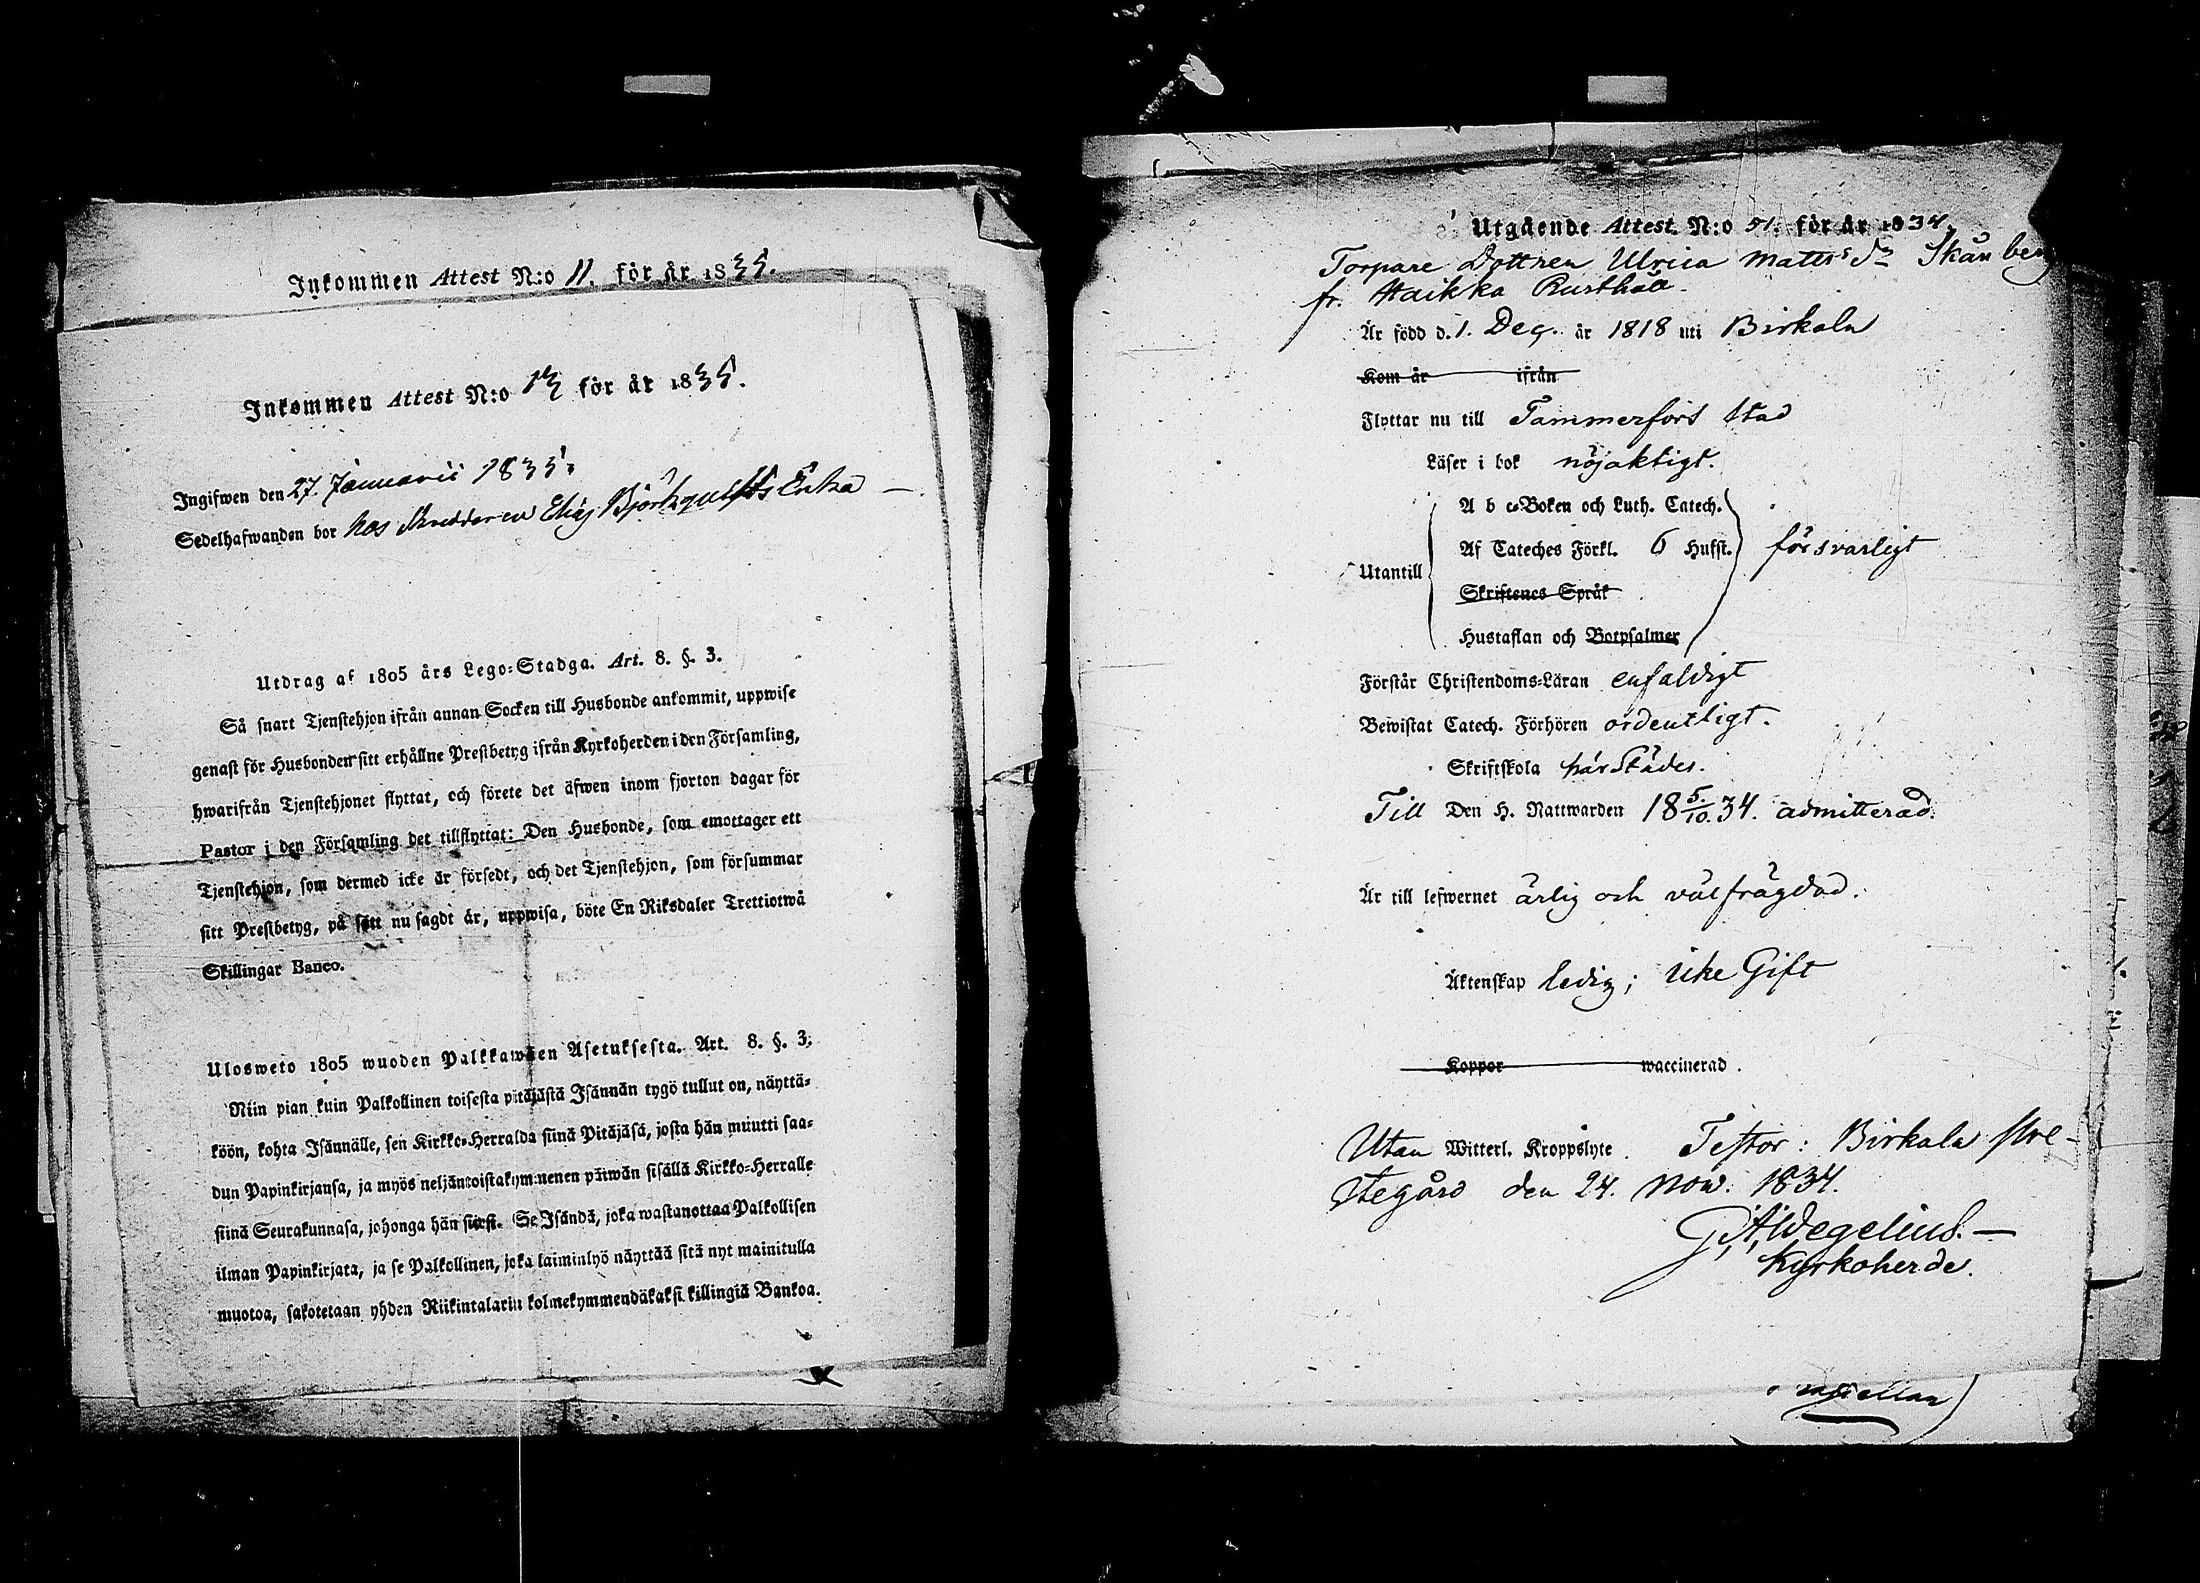 Inkommen Attest N:o 11. för år 1835.
Inkommen Attest N:o 13 för år 1835.
Ingifwen den 27. Januarii 1835.
Sedelhafwanden bor hos Skreddaren Elias Björkqvists Enka —
Utdrag af 1805 års Lego-Stadga. Art. 8. §. 3.
Så snart Tjenstehjon ifrån annan Socken till Husbonde ankommit, uppwise
genast för Husbonden sitt erhållne Prestbetyg ifrån Kyrkoherden i den Församling,
hwarifrån Tjenstehjonet flyttat, och förete det äfwen inom fjorton dagar för
Pastor i den Församling det tillflyttat: Den Husbonde, som emottager ett
Tjenstehjon, som dermed icke är försedt, och det Tjenstehjon, som försummar
sitt Prestbetyg, på sätt nu sagdt är, uppwisa, böte En Riksdaler Trettiotwå
Skillingar Banco.
Ulosweto 1805 wuoden Palkkawäen Asetuksesta. Art. 8. §. 3.
Niin pian kuin Palkollinen toisesta pitäjästä Isännän tygö tullut on, näyttä-
köön, kohta Isännälle, sen Kirkko-Herralda siinä Pitäjäsä, josta hän muutti saa-
dun Papinkirjansa, ja myös neljäntoistakymmenen päiwän sisällä Kirkko-Herralle
siinä Seurakunnasa, johonga hän siirsi. Se Isändä, joka wastanottaa Palkollisen
ilman Papinkirjata, ja se Palkollinen, joka laiminlyö näyttää sitä nyt mainitulla
muotoa, sakotetaan yhden Riikintalarin kolmekymmendäkaksi killingiä Bankoa.
Utgående Attest N:o 51. för år 1834.
Torpare Dottren Ulrica Matts dr Skånberg
fr. Haikka Rusthåll.
Är född d. 1. Dec. år 1818 uti Birkala
Kom år ifrån
Flyttar nu till Tammerfors Stad
Läser i bok nöjaktigt.
A b c-Boken och Luth. Catech.
Af Cateches Förkl. 6 Hufst. försvarligt
Utantill
Skriftenes Språk
Hustaflan och Botpsalmer
Förstår Christendoms-Läran enfaldigt
Bewistat Catech. Förhören ordentligt.
Skriftskola härstädes.
Till Den H. Nattwarden 18 5/10. 34. admitterad.
Är till lefwernet ärlig och välfrägdad.
Äktenskap ledig; icke Gift
Koppor waccinerad.
Utan Witterl. Kroppslyte. Testor: Birkala Pre-
stegård den 24. Nov. 1834.
G. A. Wegelius. —
Kyrkoherde.